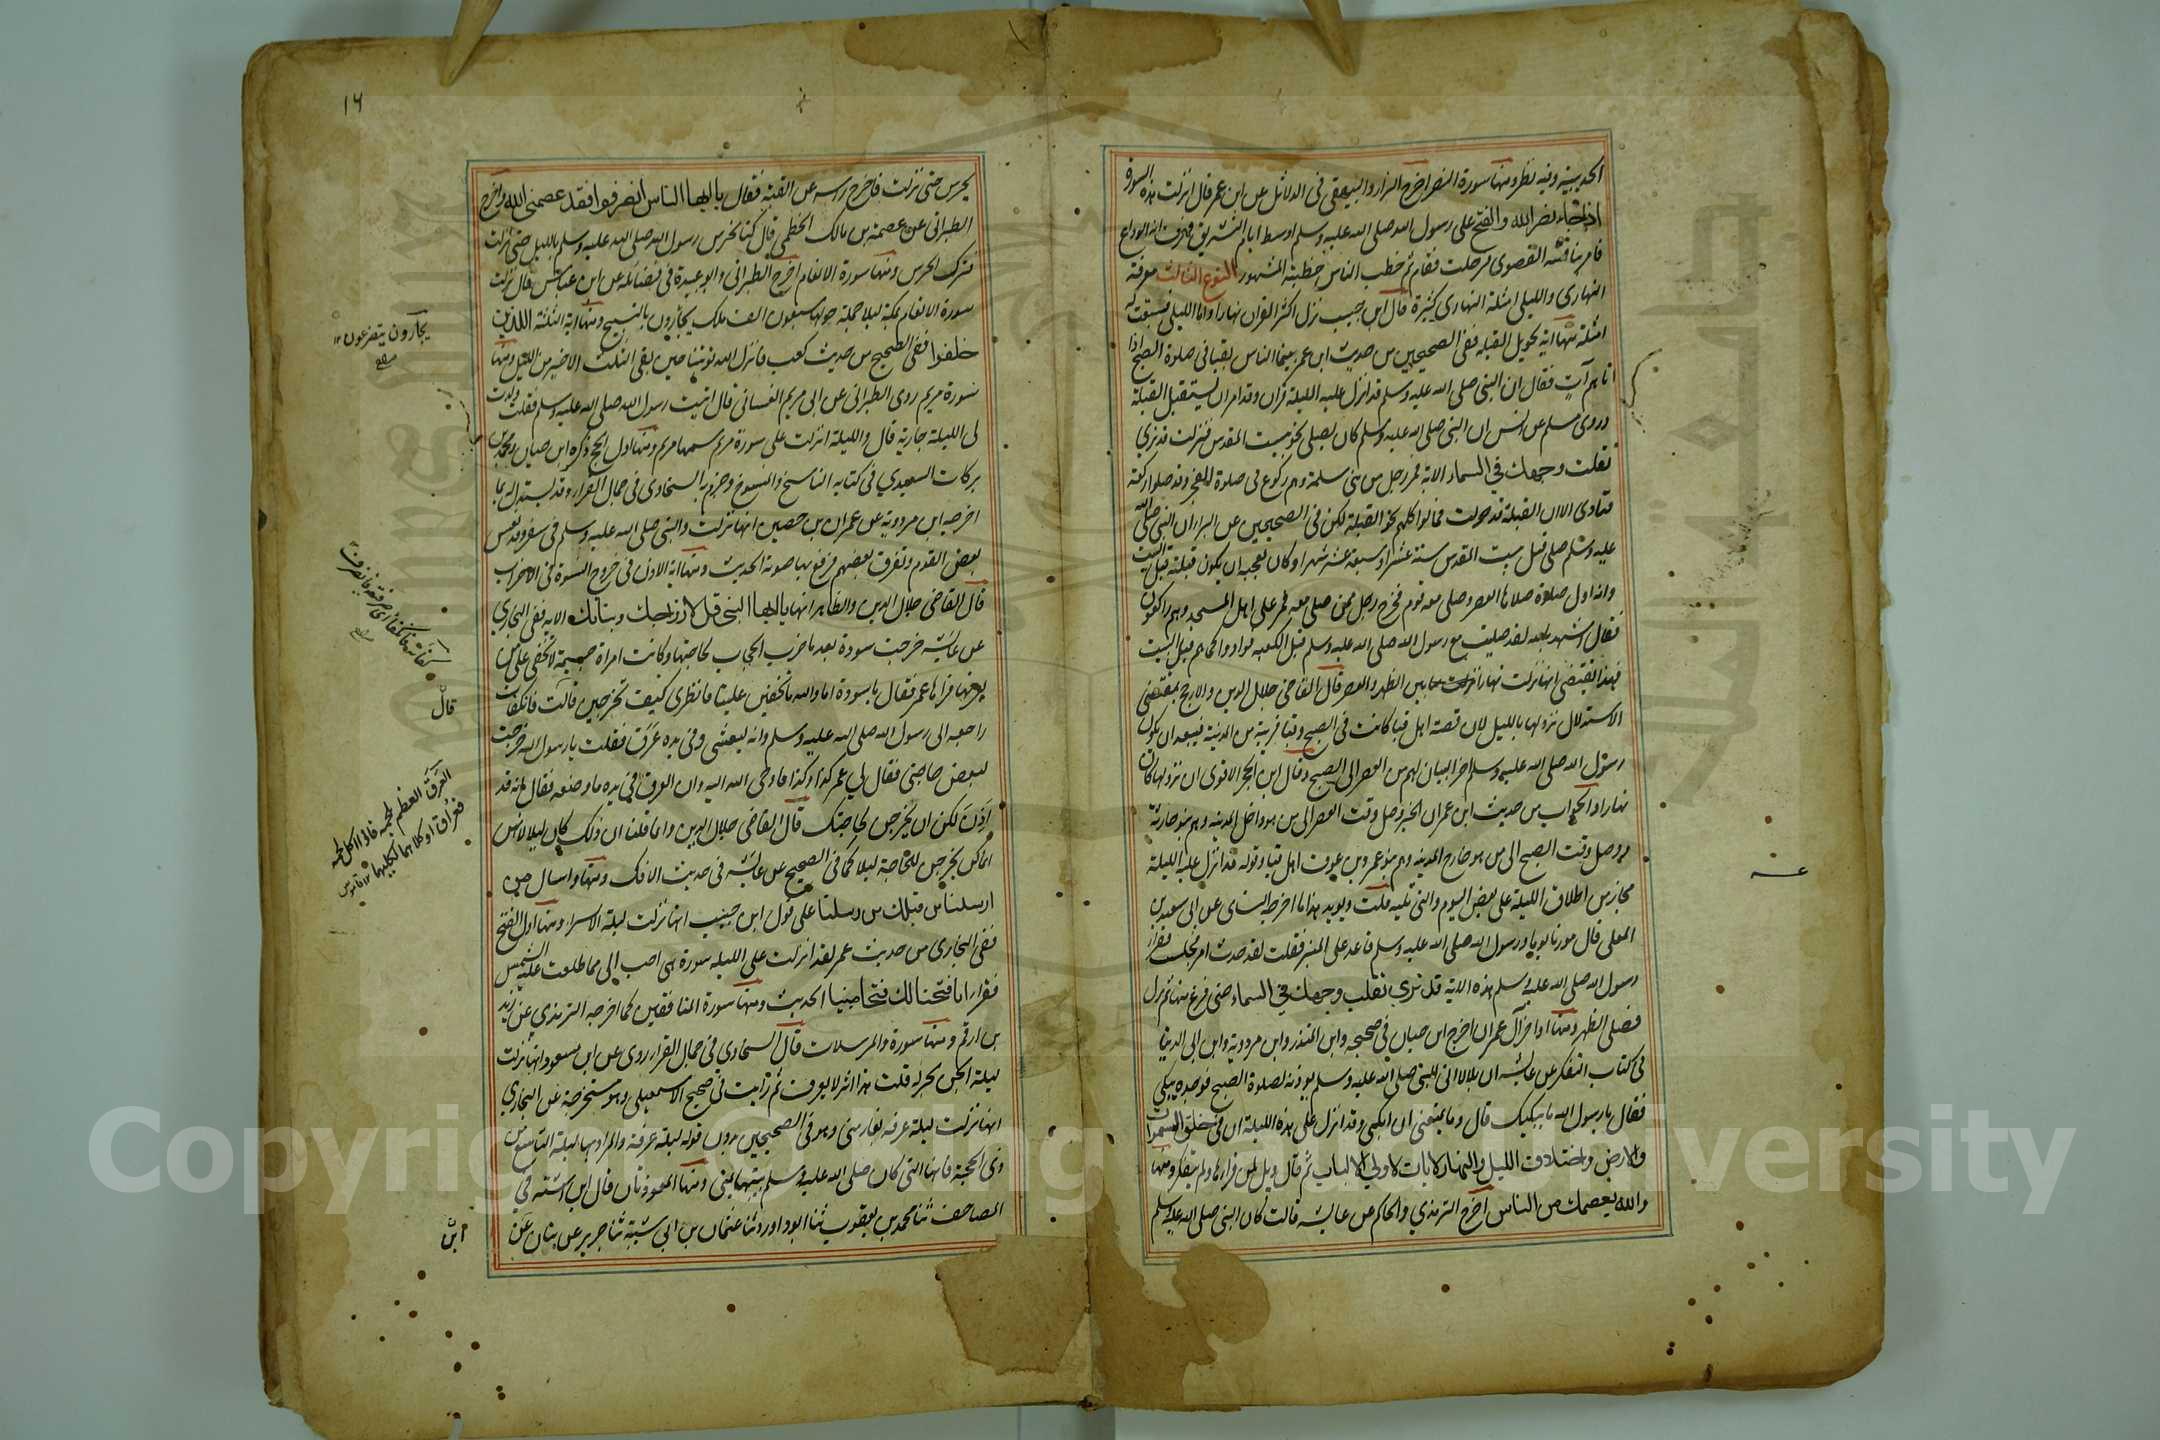 الحديبية وفيه نظر ومنها سورة النصر اخرج البزار والبيهقي في الدلائل عن ابن عمر قال انزلت هذه السورة
اذا جاء نصر الله والفتح على رسول الله صلى الله عليه وسلم اوسط ايام التشريق فعرف انه الوداع
فامر بناقته القصوى فرحلت فقام ثم خطب الناس خطبته المشهور النوع الثالث معرفة
النهاري والليلي امثلة النهاري كثيرة قال ابن حبيب نزل اكثر القران نهارا واما الليلي فتتبعت له
امثلة منها اية تحويل القبلة ففي الصحيحين من حديث ابن عمر بينما الناس بقبا في صلوة الصبح اذا
اتاهم آت فقال ان النبي صلى الله عليه وسلم قد انزل عليه الليلة قران وقد امر ان يستقبل القبلة
وروى مسلم عن انس ان النبي صلى الله عليه وسلم كان يصلي نحو بيت المقدس فنزلت قد نرى
تقلب وجهك في السماء الاية فمر رجل من بني سلمة وهم ركوع في صلوة الفجر وقد صلوا ركعة
فنادى الا ان القبلة قد حولت فمالوا كلهم نحو القبلة لكن في الصحيحين عن البراء ان النبي صلى الله
عليه وسلم صلى قبل بيت المقدس ستة عشر او سبعة عشر شهرا وكان يعجبه ان يكون قبلته قبل البيت
وانه اول صلوة صلاها العصر وصلى معه قوم فخرج رجل ممن صلى معه فمر على اهل المسجد وهم راكعون
فقال اشهد بالله لقد صليت مع رسول الله صلى الله عليه وسلم قبل الكعبة فداروا كما هم قبل البيت
فهذا يقتضي انها نزلت نهارا بين الظهر والعصر قال القاضي جلال الدين والارجح بمقتضى
الاستدلال نزولها بالليل لان قصة اهل قبا كانت في الصبح وقبا قريبة من المدينة فيبعد ان يكون
رسول الله صلى الله عليه وسلم اخر البيان لهم من العصر الى الصبح وقال ابن الحجر الاقوى ان نزولها كان
نهارا والجواب من حديث ابن عمر ان الخبر وصل وقت العصر الى من هو داخل المدينة وهم بنو حارثة
ووصل وقت الصبح الى من هو خارج المدينة وهم بنو عمرو بن عوف اهل قبا وقوله قد انزل عليه الليلة
مجاز من اطلاق الليلة على بعض اليوم والتي تليه قلت ويويد هذا ما اخرجه النساى عن ابي سعيد بن
المعلى قال مررنا يوما ورسول الله صلى الله عليه وسلم قاعد على المنبر فقلت لقد حدث امر فجلست فقرأ
رسول الله صلى الله عليه وسلم هذه الاية قد نرى تقلب وجهك في السماء حتى فرغ منها ثم نزل
فصلى الظهر ومنها اواخر آل عمران اخرج ابن حبان في صحيحه وابن المنذر وابن مردوية وابن ابي الدنيا
في كتاب التفكر عن عائشة ان بلالا اتى النبي صلى الله عليه وسلم يوذنه لصلوة الصبح فوجده يبكي
فقال يا رسول الله ما يبكيك قال وما يمنعني ان ابكي وقد انزل علي هذه الليلة ان في خلق السموات
والارض واختلاف الليل والنهار لايات لاولي الالباب ثم قال ويل لمن قراها ولم يتفكر ومنها
والله يعصمك من الناس اخرج الترمذي والحاكم عن عايشة قالت كان النبي صلى الله عليه وسلم
١٦
يحرس حتى نزلت فاخرج راسه من القبة فقال يا ايها الناس انصرفوا فقد عصمني الله واخرج
الطبراني عن عصمة بن مالك الخطمي قال كنا نحرس رسول الله صلى الله عليه وسلم بالليل حتى نزلت
فترك الحرس ومنها سورة الانعام اخرج الطبراني وابو عبيدة في فضائله عن ابن عباس قال نزلت
سورة الانعام بمكة ليلا جملة حولها سبعون الف ملك يجارون بالتسبيح ومنها اية الثلثة الذين
خلفوا ففي الصحيح من حديث كعب فانزل الله توبتنا حين بقي الثلث الاخير من الليل ومنها
سورة مريم روى الطبراني عن ابي مريم الغساني قال اتيت رسول الله صلى الله عليه وسلم فقلت ولدت
لي الليلة جارية قال والليلة انزلت علي سورة مريم سمها مريم ومنها اول الحج ذكره ابن حبان ومحمد بن
بركات السعيدي في كتابه الناسخ والمنسوخ وجزم به السخاوي في جمال القراء وقد يستدل له بما
اخرجه ابن مردوية عن عمران بن حصين انها نزلت والنبي صلى الله عليه وسلم في سفر وقد نعس
بعض القوم وتفرق بعضهم فرفع بها صوته الحديث ومنها اية الاذن في خروج النسوة في الاحزاب
قال القاضي جلال الدين والظاهر انها يا ايها النبي قل لازواجك وبناتك الاية ففي البخاري
عن عائشة خرجت سودة بعد ما ضرب الحجاب لحاجتها وكانت امراة جسيمة لا تخفى على من
يعرفها فراها عمر فقال يا سودة اما والله ما تخفين علينا فانظري كيف تخرجين قالت فانكفات
راجعة الى رسول الله صلى الله عليه وسلم وانه ليتعشى وفي يده عرق فقلت يا رسول الله خرجت
لبعض حاجتي فقال لي عمر كذا وكذا فاوحى الله اليه وان العرق في يده ما وضعه فقال انه قد
اذن لكن ان تخرجن لحاجتكن قال القاضي جلال الدين وانما قلنا ان ذلك كان ليلا لانهن
انما كن يخرجن للحاجة ليلا كما في الصحيح عن عائشة في حديث الافك ومنها واسال من
ارسلنا من قبلك من رسلنا على قول ابن حبيب انها نزلت ليلة الاسرا ومنها اول الفتح
ففي البخاري من حديث عمر لقد انزلت علي الليلة سورة هي احب الي مما طلعت عليه الشمس
فقرا انا فتحنا لك فتحا مبينا الحديث ومنها سورة المنافقين كما اخرجه الترمذي عن زيد
بن ارقم ومنها سورة والمرسلات قال السخاوي في جمال القراء روى عن ابن مسعود انها نزلت
ليلة الجن بحراء قلت هذا اثر لا يعرف ثم رايت في صحيح الاسمعيلي وهو مستخرجة عن البخاري
انها نزلت ليلة عرفه بغار منى وهو في الصحيحين بدون قوله ليلة عرفة والمراد بها ليلة التاسع من
ذي الحجة فانها التي كان صلى الله عليه وسلم يبيتها بمنى ومنها المعوذتان قال ابن اشته في
المصاحف ثنا محمد بن يعقوب ثنا ابوداود ثنا عثمان بن ابي شيبة ثنا جرير عن بنان عن
يجأرون يتضرعون ١٢
قال
العرق العظم بلحمه فاذا اكل لحمه
فعراق او كلاهما لكليهما ١٢ قاموس
ابن
Copyright © King Saud University